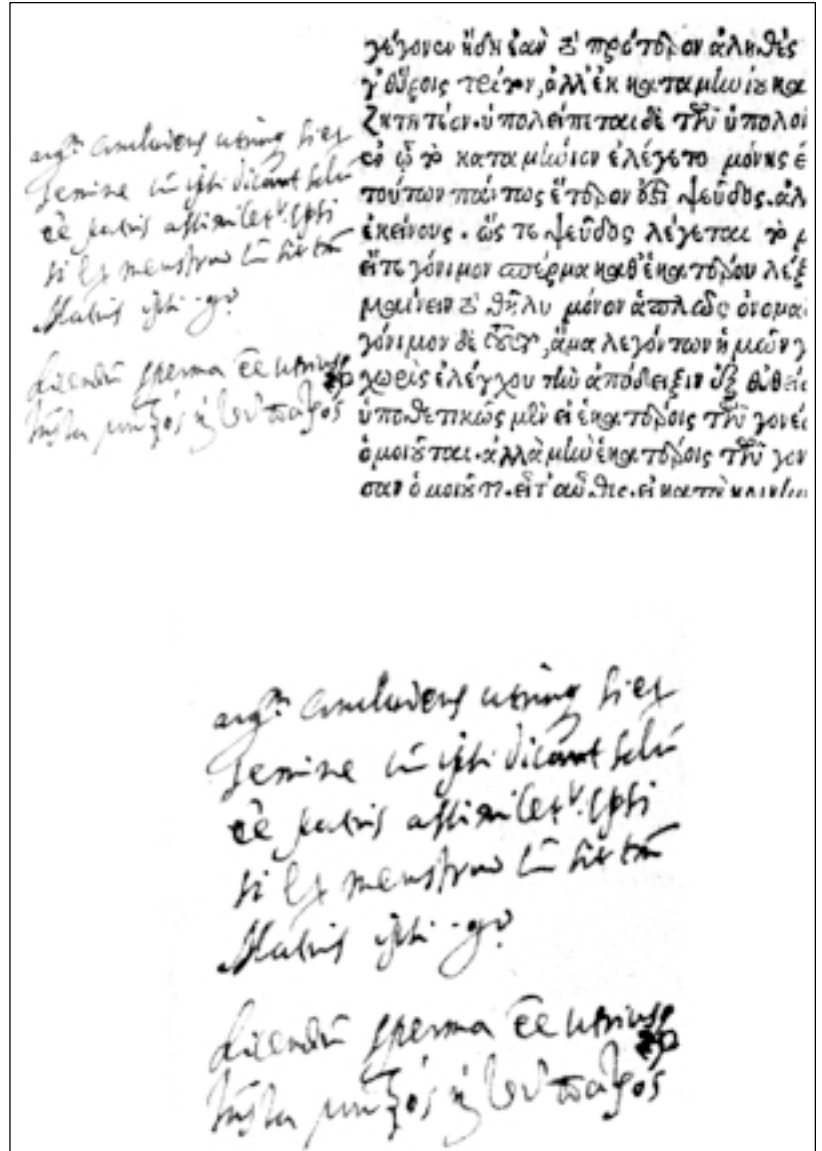 arg.m concludens utrinq si ex
semine cū ipsi dicant solū
ēē patris assimilet.r ipsi
si ex menstruo cū sit tm̄
Matris ipsi. go
dicendū sperma ēē utriusq
μητρός ἢ τοῦ πατρός
γέγονεν ἤδη ἐὰν τὸ πρότερον ἀληθὲς
γ' εὕροις τρίτον, ἀλλ' ἐκ καταμηνίου κα
ζητητέον. ὑπολείπεται δὲ τῶν ὑπολοί
ἐν ᾧ τὸ καταμήνιον ἐλέγετο μόνης ἐ
τούτων πάντως ἕτερον ἐστι ψεῦδος. ἀλ
ἐκείνους. ὥς τε ψεῦδος λέγεται τὸ μ
εἴτε γόνιμον σπέρμα καθ' ἑκατέρου λέξ
μαίνειν τὸ θῆλυ μόνον ἁπλῶς ὀνομα
γόνιμον δὲ, ἅμα λεγόντων ἡμῶν γ
χωρὶς ἐλέγχου τὴν ἀπόδειξιν ἐξ εὐθεία
ὑποθετικῶς μὲν εἰ ἑκατέροις τῶν γονέω
ὁμοιοῦται. ἀλλὰ μὴν ἑκατέροις τῶν γον
σαν ὁμοιοῦται. εἶτ' αὖθις. εἰ κατὰ κοινὴν
arg.m concludens utrinq si ex
semine cū ipsi dicant solū
ēē patris assimilet.r ipsi
si ex menstruo cū sit tm̄
Matris ipsi. go
dicendū sperma ēē utriusq
μητρός ἢ τοῦ πατρός